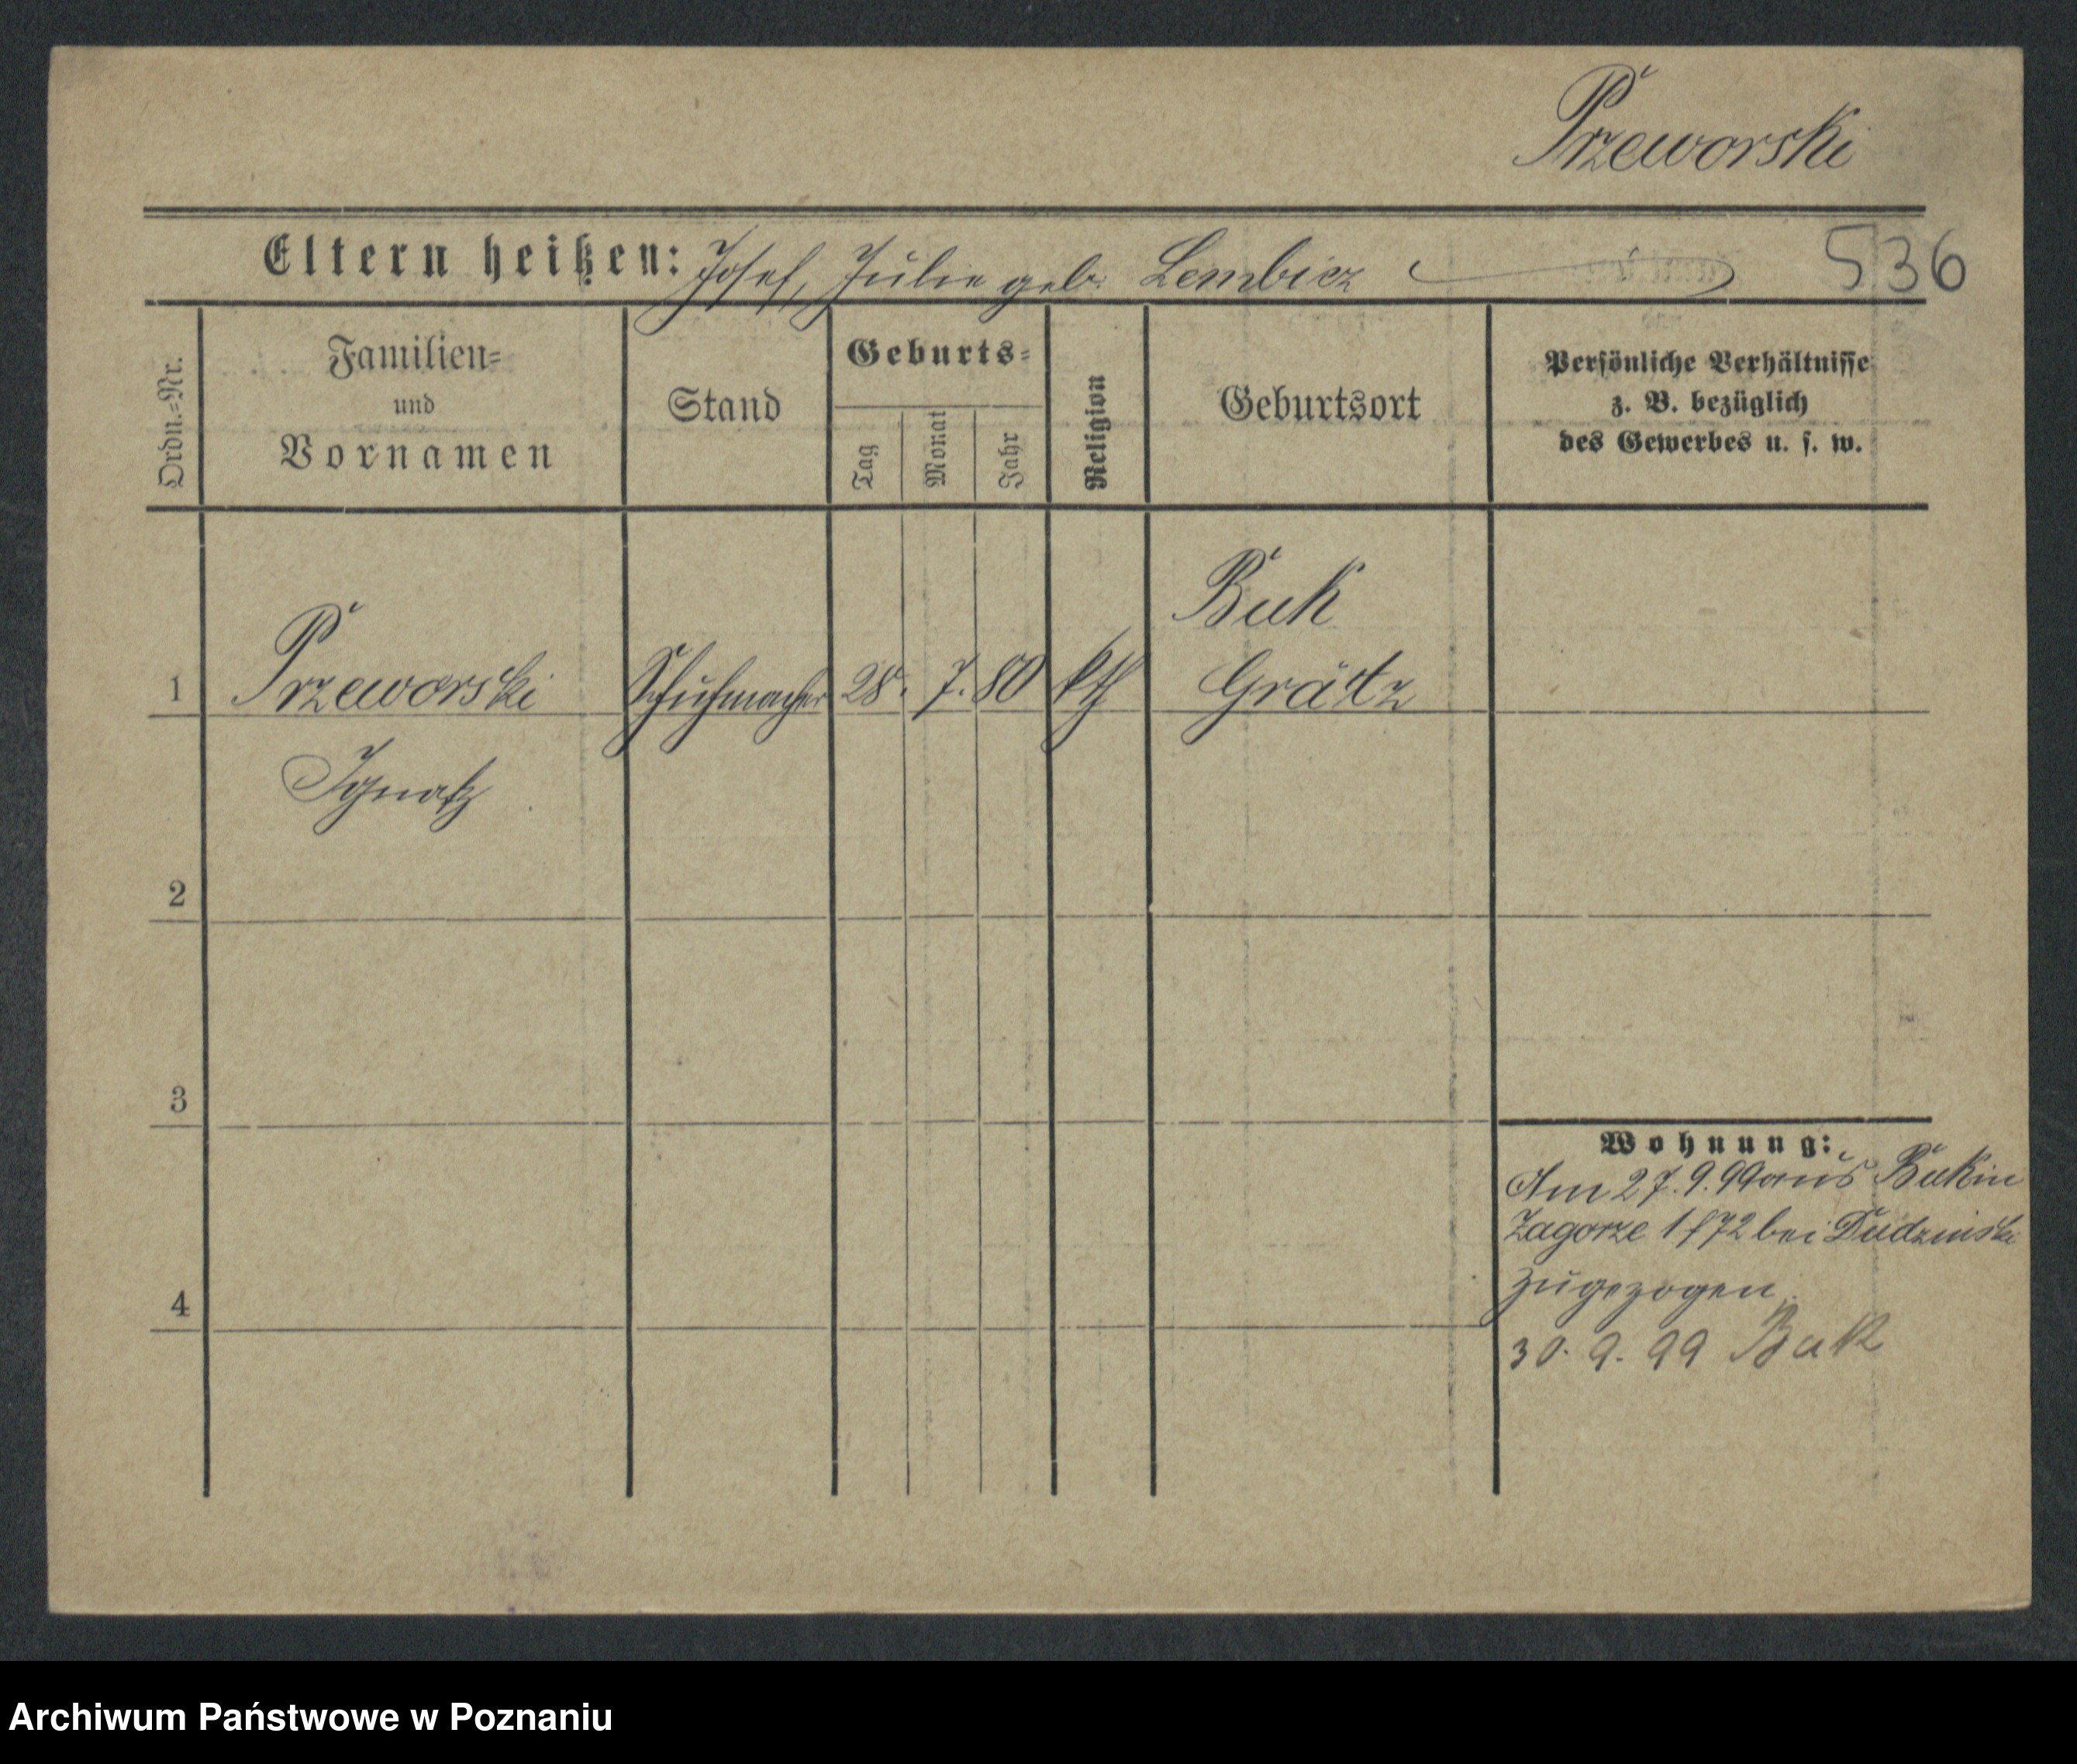 Przeworski
Eltern heißen: Josef, Julie geb. Lembicz
536
Ordn.=Nr.
Familien=
und
Vornamen
Stand
Geburts=
Tag
Monat
Jahr
Religion
Geburtsort
Persönliche Verhältnisse
z. B. bezüglich
des Gewerbes u. s. w.
Buk
1 Przeworski Schuhmacher 28. 7. 80 kth Grätz
Ignatz
2
3
Wohnung:
Am 27.9.99 aus Buk in
Zagorze 1 f 72 bei Dudzinski
zugezogen.
4
30. 9. 99 Buk
Archiwum Państwowe w Poznaniu